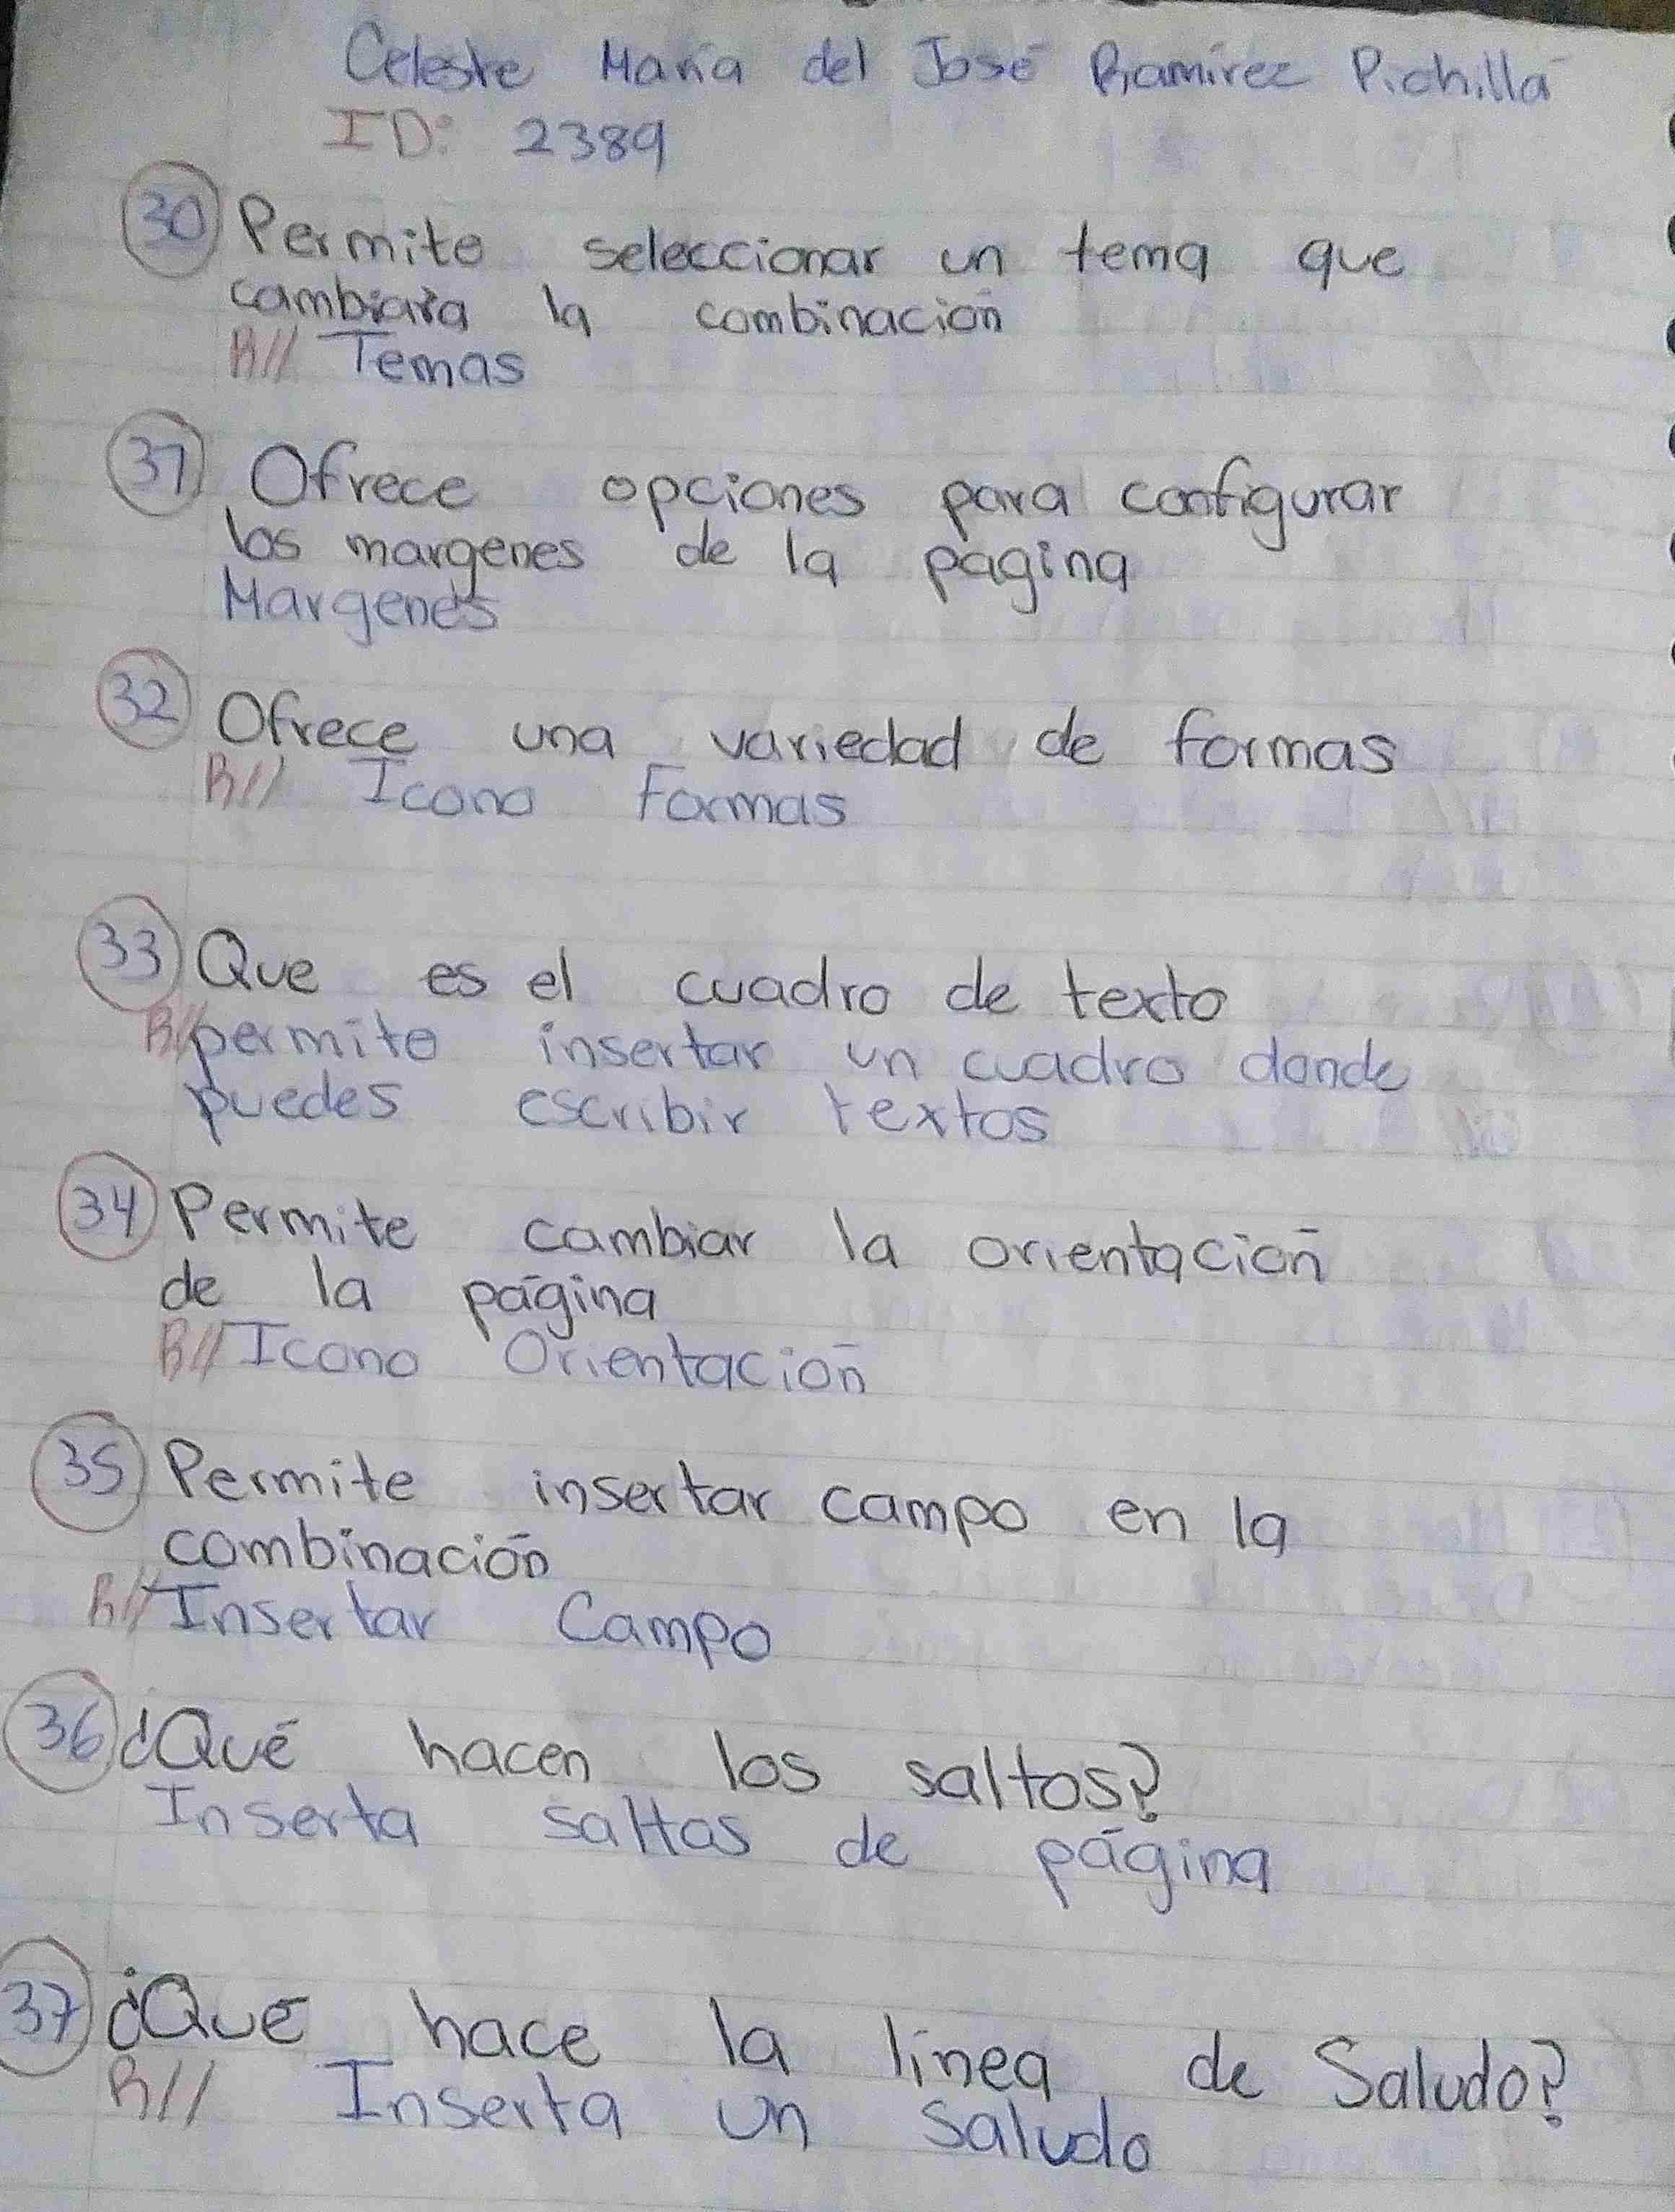 Celeste María del José Ramírez Pichillá
ID: 2389
30 Permite seleccionar un tema que
cambiara la combinación
R// Temas
31 Ofrece opciones para configurar
los margenes de la página
Margenes
32 Ofrece una variedad de formas
R// Icono Formas
33 Que es el cuadro de texto
R// permite insertar un cuadro donde
puedes escribir textos
34 Permite cambiar la orientación
de la página
R// Icono Orientación
35 Permite insertar campo en la
combinación
R// Insertar Campo
36 ¿Qué hacen los saltos?
Inserta saltos de página
37 ¿Qué hace la línea de Saludo?
R// Inserta un Saludo